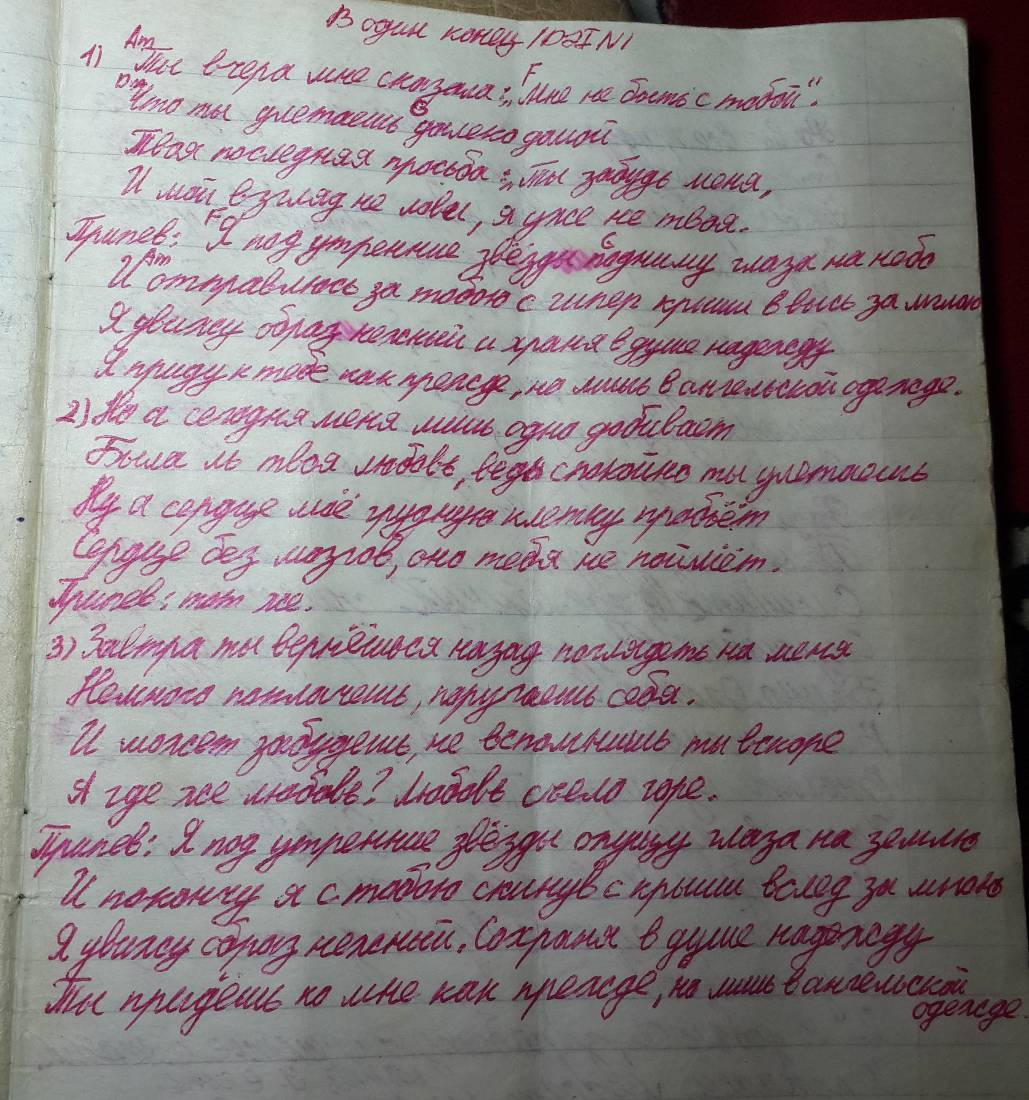 В один конец /DZIN/
Am F
1) Ты вчера мне сказала: „Мне не быть с тобой“.
Dm G
Что ты улетаешь далеко домой
Твоя последняя просьба: „Ты забудь меня,
И мой взгляд не лови, я уже не твоя.
F G
Припев: Я под утренние звёзды подниму глаза на небо
Am
И отправлюсь за тобою с гипер крыши ввысь за мглою
Я увижу образ нежный и храня в душе надежду
Я приду к тебе как прежде, но лишь в ангельской одежде.
2) Но а сегодня меня лишь одно добивает
Была ль твоя любовь, ведь спокойно ты улетаешь
Ну а сердце моё грудную клетку пробьёт
Сердце без мозгов, оно тебя не поймёт.
Припев: тот же.
3) Завтра ты вернёшься назад поглядеть на меня
Немного поплачешь, поругаешь себя.
И может забудешь, не вспомнишь ты вскоре
А где же любовь? Любовь съело горе.
Припев: Я под утренние звёзды опущу глаза на землю
И покончу я с тобою скинув с крыши вслед за мною
Я увижу образ нежный. Сохраня в душе надежду
Ты придёшь ко мне как прежде, но лишь в ангельской
одежде.